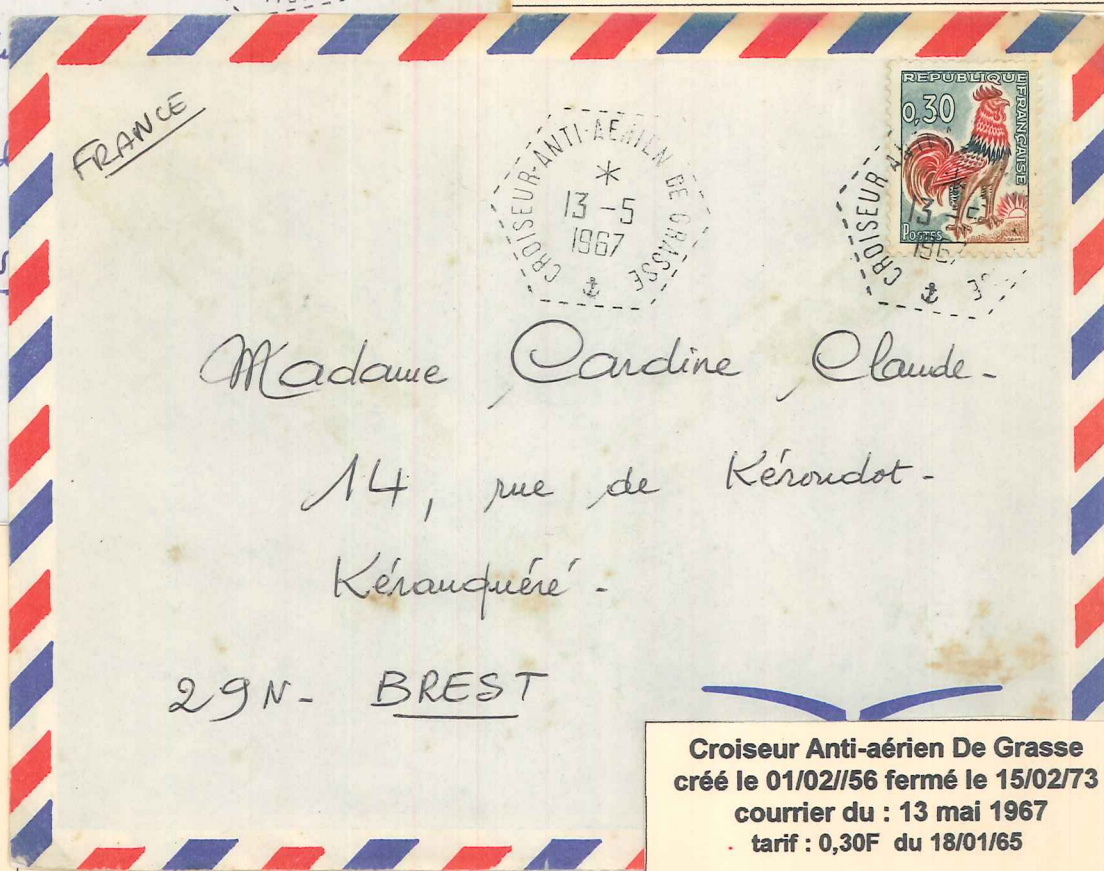 FRANCE
CROISEUR-ANTI-AERIEN DE GRASSE
13 -5
1967
REPUBLIQUE
FRANÇAISE
0,30
POSTES
CROISEUR
13
1967
Madame Cardine Claude-
14, rue de Kéroudot-
Kéranquéré-
29N- BREST
Croiseur Anti-aérien De Grasse
créé le 01/02//56 fermé le 15/02/73
courrier du : 13 mai 1967
tarif : 0,30F du 18/01/65